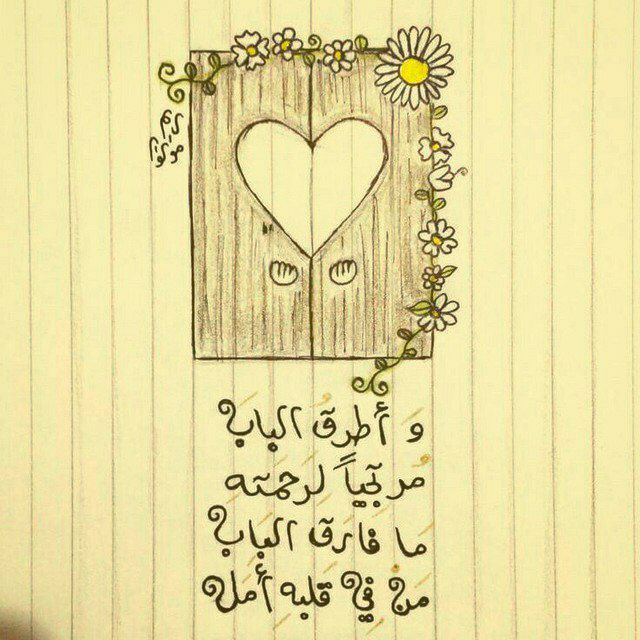 و أطرق الباب
مرتجياً لرحمته
ما فارق الباب
من في قلبه أمل